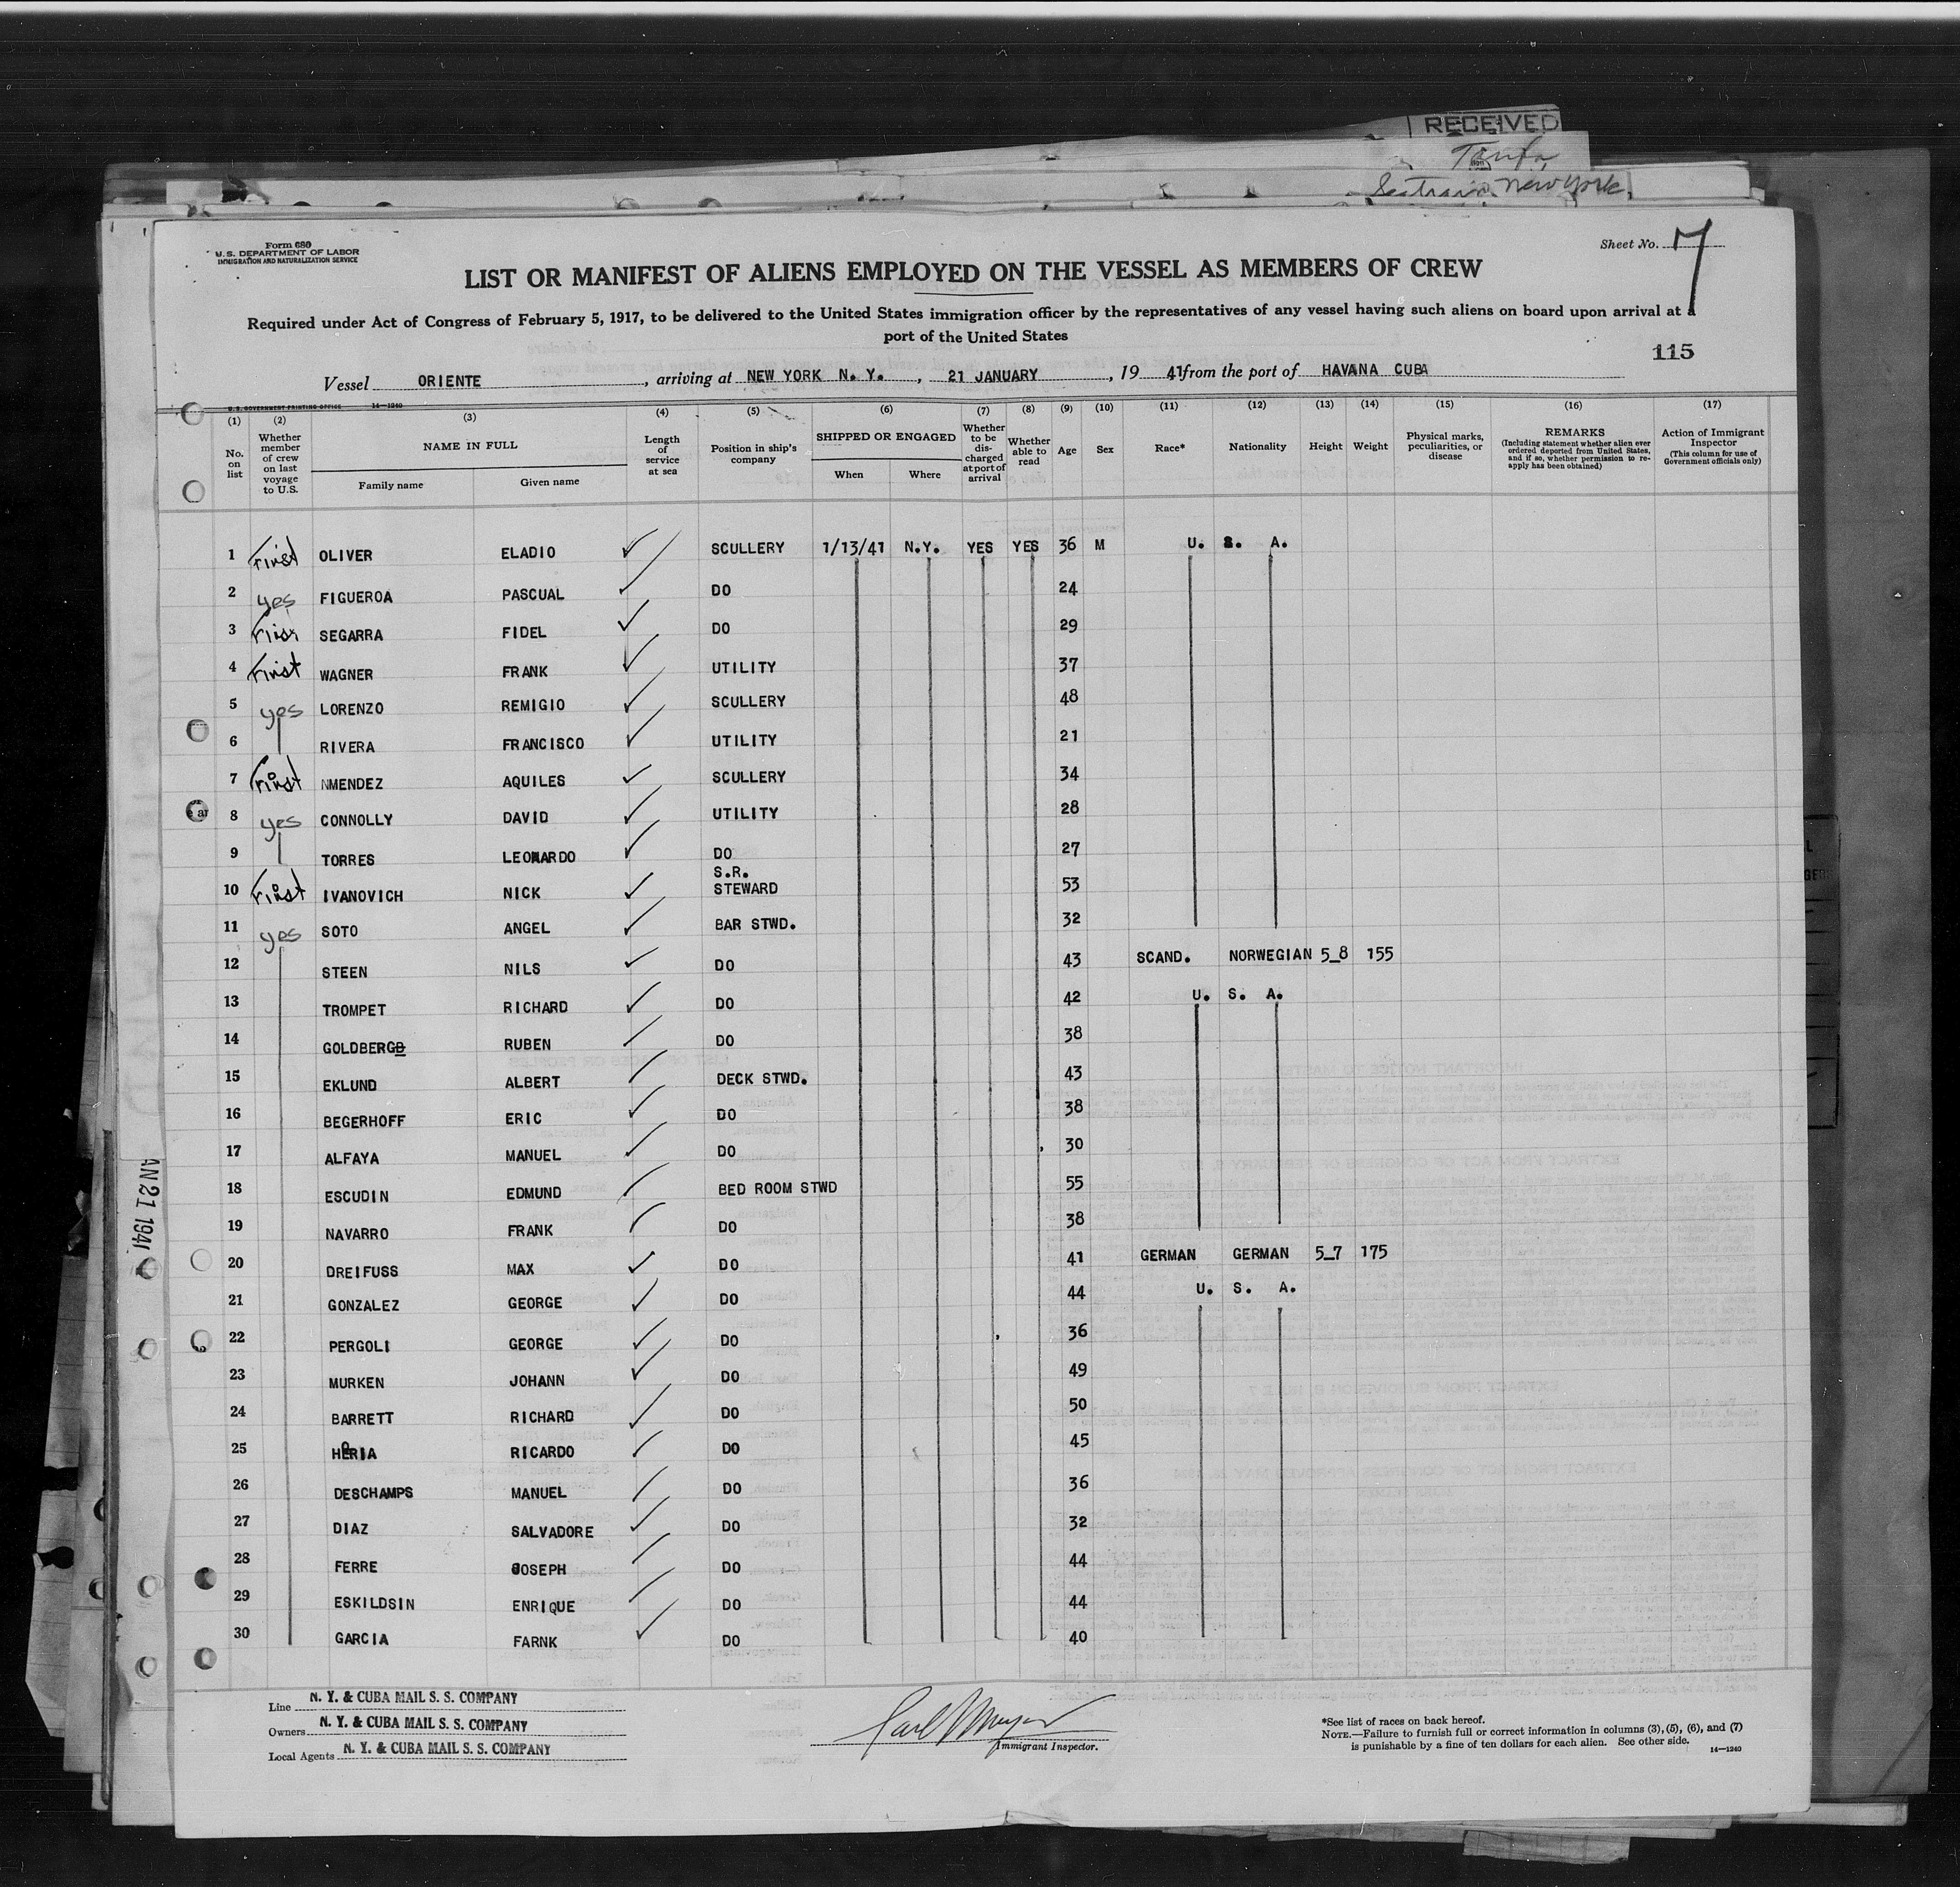 RECEIVED
Seatrain New York.
Form 680
U. S. DEPARTMENT OF LABOR
IMMIGRATION AND NATURALIZATION SERVICE
Sheet No. 7
LIST OR MANIFEST OF ALIENS EMPLOYED ON THE VESSEL AS MEMBERS OF CREW
Required under Act of Congress of February 5, 1917, to be delivered to the United States immigration officer by the representatives of any vessel having such aliens on board upon arrival at a
port of the United States
115
Vessel ORIENTE, arriving at NEW YORK N. Y., 21 JANUARY, 19 41 from the port of HAVANA CUBA
U. S. GOVERNMENT PRINTING OFFICE 14—1240
(1) (2) (3) (4) (5) (6) (7) (8) (9) (10) (11) (12) (13) (14) (15) (16) (17)
No. on list
Whether member of crew on last voyage to U.S.
NAME IN FULL
Family name Given name
Length of service at sea
Position in ship's company
SHIPPED OR ENGAGED
When Where
Whether to be discharged at port of arrival
Whether able to read
Age Sex Race* Nationality Height Weight
Physical marks, peculiarities, or disease
REMARKS
(Including statement whether alien ever ordered deported from United States, and if so, whether permission to re-apply has been obtained)
Action of Immigrant Inspector
(This column for use of Government officials only)
1 First OLIVER ELADIO SCULLERY 1/13/41 N.Y. YES YES 36 M U. S. A.
2 yes FIGUEROA PASCUAL DO 24
3 First SEGARRA FIDEL DO 29
4 First WAGNER FRANK UTILITY 37
5 yes LORENZO REMIGIO SCULLERY 48
6 RIVERA FRANCISCO UTILITY 21
7 First MENDEZ AQUILES SCULLERY 34
8 yes CONNOLLY DAVID UTILITY 28
9 TORRES LEONARDO DO 27
10 First IVANOVICH NICK S.R. STEWARD 53
11 yes SOTO ANGEL BAR STWD. 32
12 STEEN NILS DO 43 SCAND. NORWEGIAN 5_8 155
13 TROMPET RICHARD DO 42 U. S. A.
14 GOLDBERG RUBEN DO 38
15 EKLUND ALBERT DECK STWD. 43
16 BEGERHOFF ERIC DO 38
17 ALFAYA MANUEL DO 30
18 ESCUDIN EDMUND BED ROOM STWD 55
19 NAVARRO FRANK DO 38
20 DREIFUSS MAX DO 41 GERMAN GERMAN 5_7 175
21 GONZALEZ GEORGE DO 44 U. S. A.
22 PERGOLI GEORGE DO 36
23 MURKEN JOHANN DO 49
24 BARRETT RICHARD DO 50
25 RICARDO DO 45
26 DESCHAMPS MANUEL DO 36
27 DIAZ SALVADORE DO 32
28 FERRE JOSEPH DO 44
29 ESKILDSIN ENRIQUE DO 44
30 GARCIA FARNK DO 40
AN 21 1941
Line N. Y. & CUBA MAIL S. S. COMPANY
Owners N. Y. & CUBA MAIL S. S. COMPANY
Local Agents N. Y. & CUBA MAIL S. S. COMPANY
Immigrant Inspector.
*See list of races on back hereof.
NOTE.—Failure to furnish full or correct information in columns (3), (5), (6), and (7)
is punishable by a fine of ten dollars for each alien. See other side.
14—1240